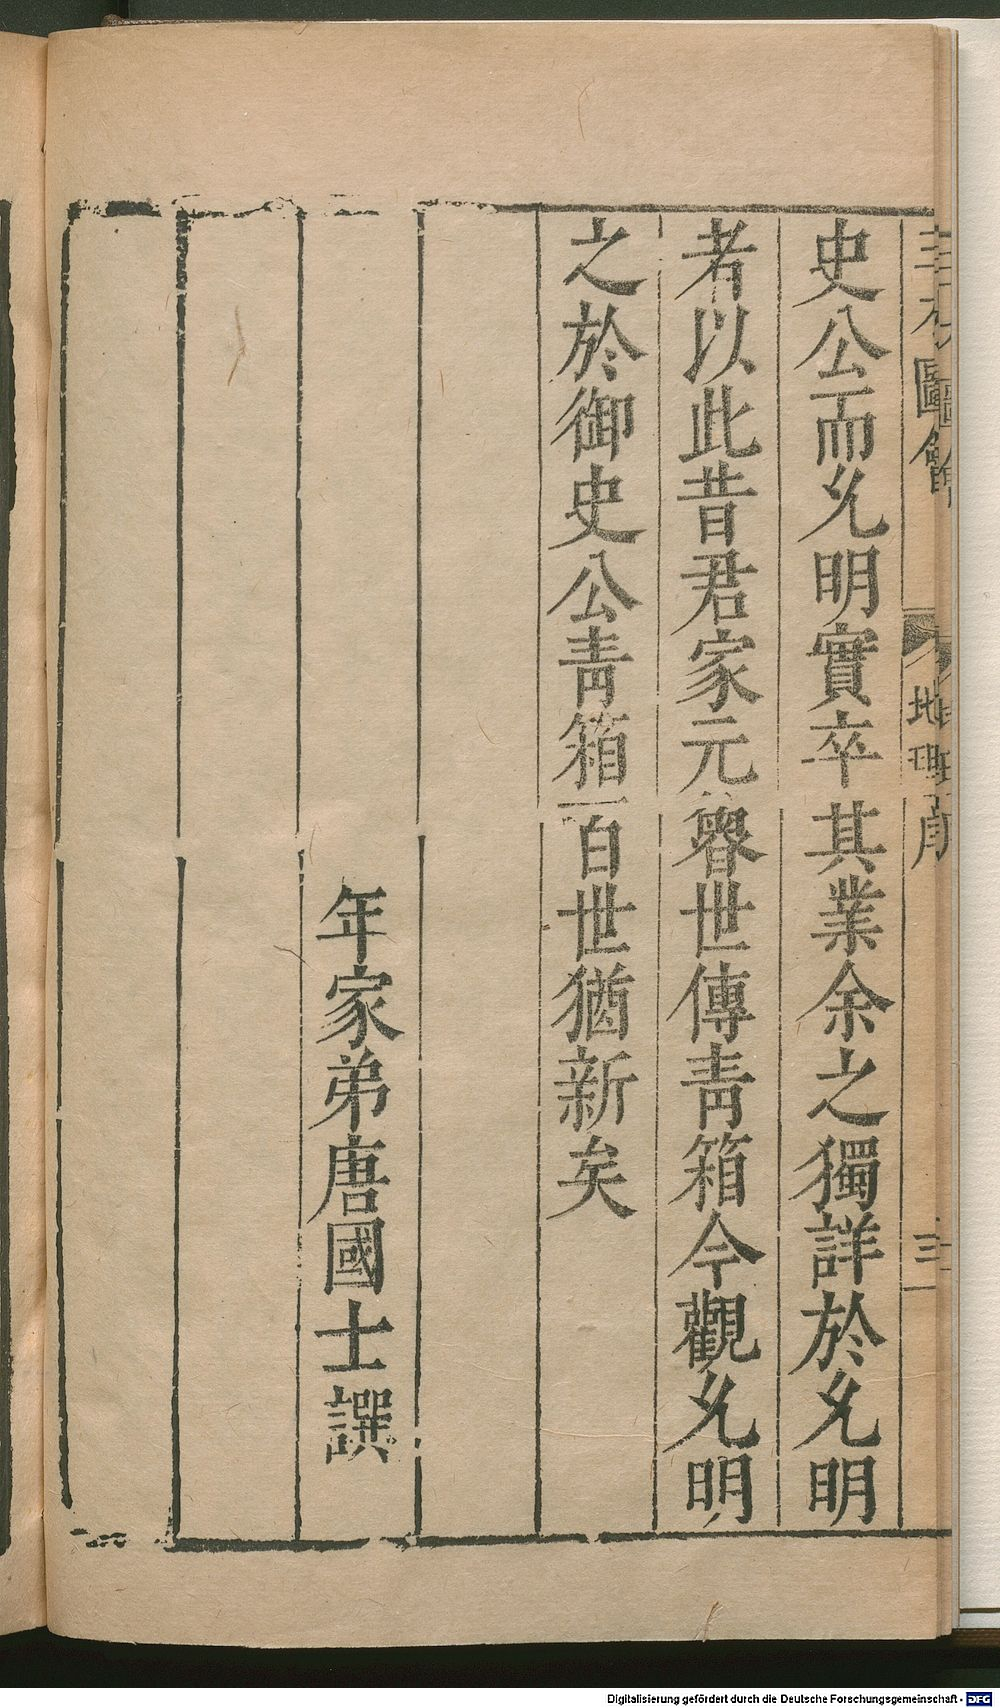 三才圖會 地理序 三
史公而允明實卒其業余之獨詳於允明
者以此昔君家元世傳青箱今觀允明
之於御史公青箱百世猶新矣
年家弟唐國士譔
Digitalisierung gefördert durch die Deutsche Forschungsgemeinschaft - DFG